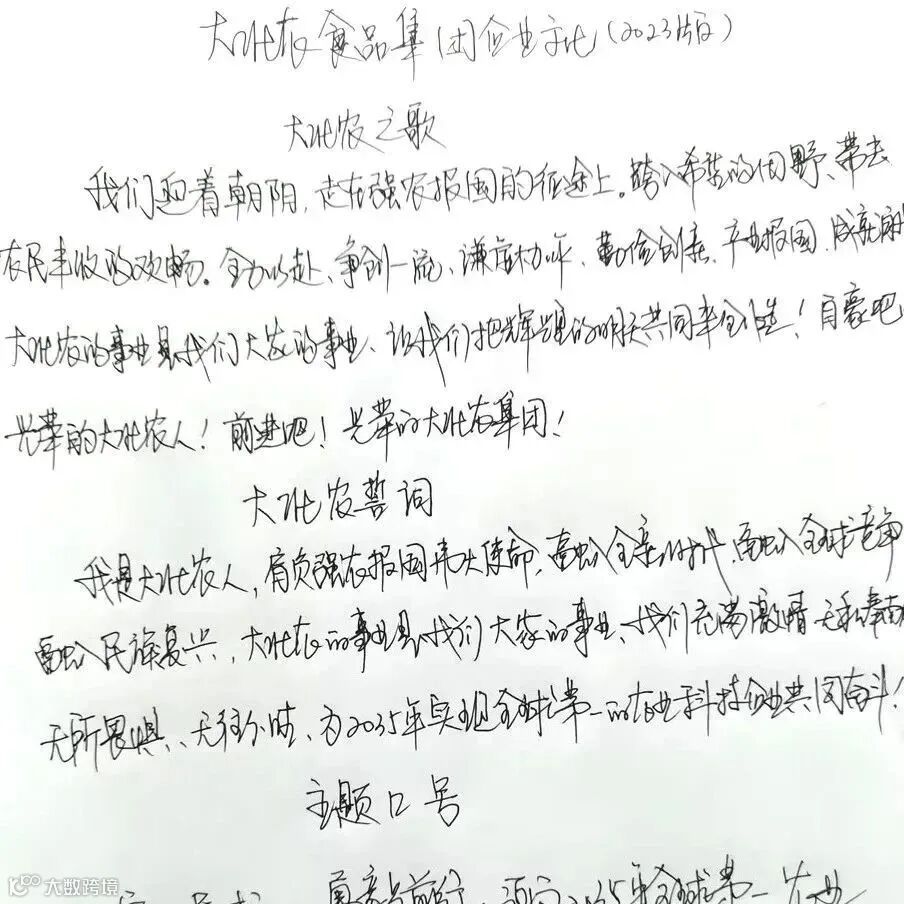 大北农食品集团企业文化(2023版)
大北农之歌
我们迎着朝阳,走在强农报国的征途上。跨入希望的田野、带去
农民丰收的欢畅。全力以赴、争创一流、谦虚 勤俭创新、产业报国、
大北农的事业是我们大家的事业、让我们把辉煌的明天共同来创造!自豪吧
光荣的大北农人!前进吧!光荣的大北农集团!
大北农誓词
我是大北农人,肩负强农报国伟大使命,融入全新时代,融入全球竞争
融入民族复兴,大北农的事业是我们大家的事业、我们充满激情
无所畏惧、无往不胜、为2035年实现全球第一的农业科技企业共同奋斗!
主题口号
前行 全球第一农业
大数跨境